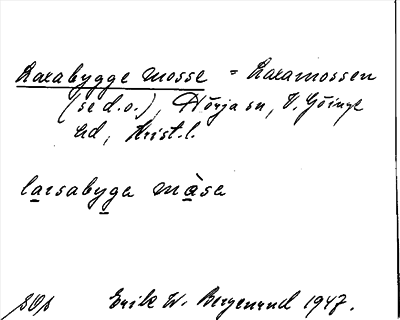 Laxabygge mosse = Laxamossen
(se d.o.), Hörja sn, V. Göinge
hd, Krist. l.
laṟsabyg̱a mà̱sa
Erik W. Bergenrud 1947.